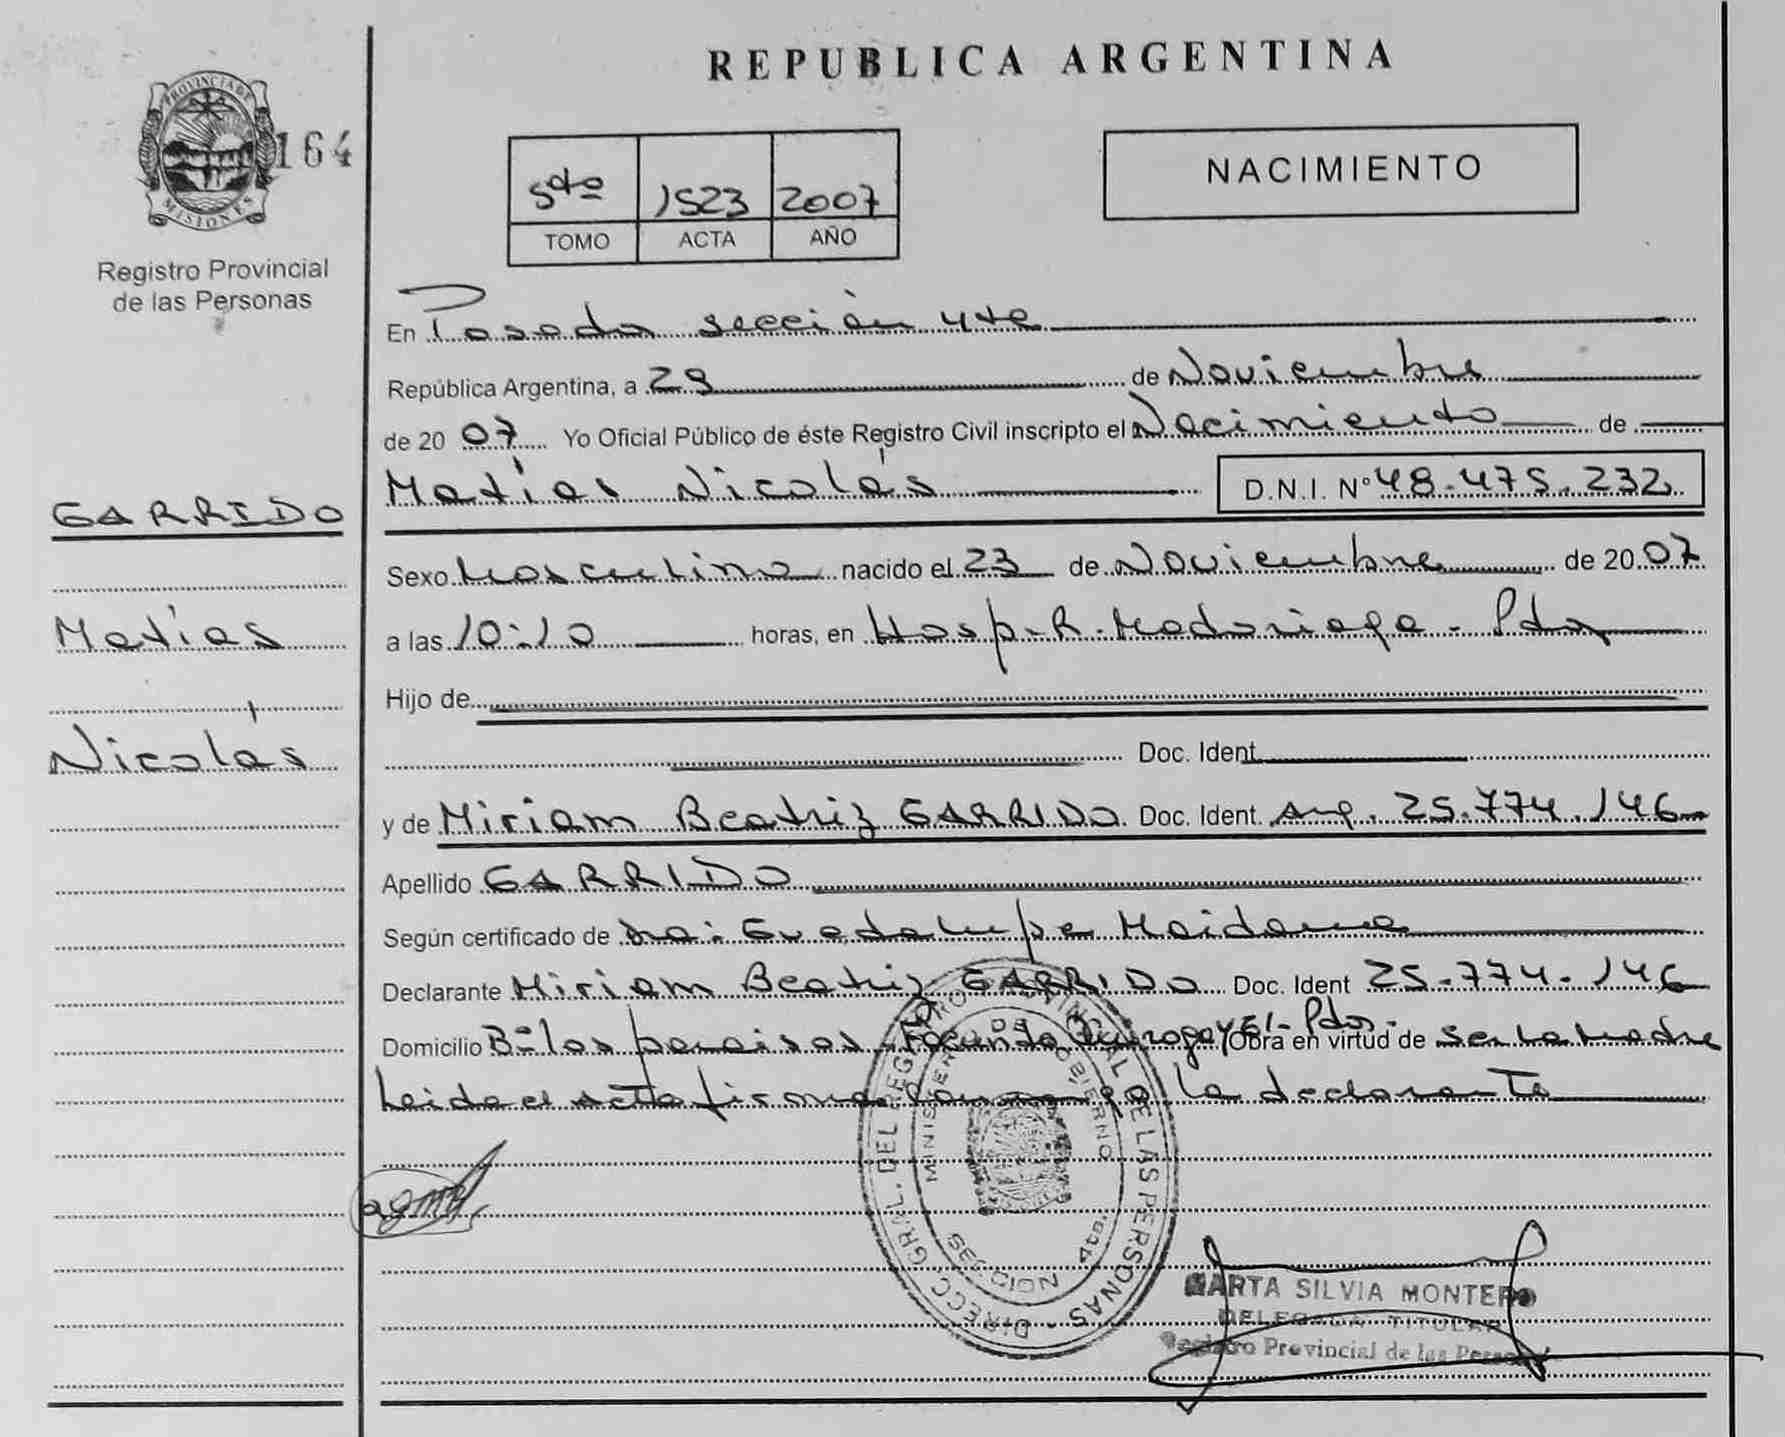 REPUBLICA ARGENTINA
PROVINCIA DE MISIONES
164
Registro Provincial
de las Personas
5to 1523 2007
TOMO ACTA AÑO
NACIMIENTO
En Posadas sección 4ta
República Argentina, a 29 de Noviembre
de 2007 Yo Oficial Público de éste Registro Civil inscripto el Nacimiento de
Matías Nicolás D.N.I. Nº 48.475.232
GARRIDO
Matías
Nicolás
Sexo Masculino nacido el 23 de Noviembre de 2007
a las 10:10 horas, en Hosp. R. Madariaga - Pdas
Hijo de
Doc. Ident.
y de Miriam Beatriz GARRIDO Doc. Ident. Arg. 25.774.146
Apellido GARRIDO
Según certificado de Dra: Guadalupe Maidana
Declarante Miriam Beatriz GARRIDO Doc. Ident 25.774.146
Domicilio Bº los paraisos - Facundo Quiroga Pdas. Obra en virtud de ser la madre
Leida el acta firma conmigo la declarante
DIRECC. GRAL. DEL REGISTRO PROVINCIAL DE LAS PERSONAS
MINISTERIO DE GOBIERNO
SECCION 4ta.
MARTA SILVIA MONTERO
DELEGADA TITULAR
Registro Provincial de las Personas